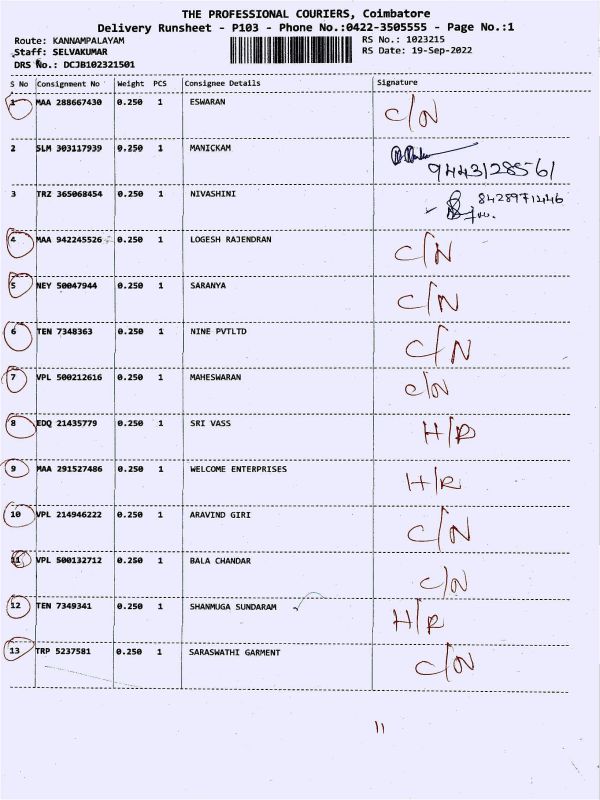 THE PROFESSIONAL COURIERS, Coimbatore
Delivery Runsheet - P103 - Phone No.:0422-3505555 - Page No.:1
Route: KANNAMPALAYAM
RS No.: 1023215
Staff: SELVAKUMAR
RS Date: 19-Sep-2022
DRS No.: DCJB102321501
S No Consignment No Weight PCS Consignee Details Signature
1 MAA 288667430 0.250 1 ESWARAN C/N
2 SLM 303117939 0.250 1 MANICKAM 9443128561
3 TRZ 365068454 0.250 1 NIVASHINI 8428971446
4 MAA 942245526 0.250 1 LOGESH RAJENDRAN C/N
5 NEY 50047944 0.250 1 SARANYA C/N
6 TEN 7348363 0.250 1 NINE PVTLTD C/N
7 VPL 500212616 0.250 1 MAHESWARAN C/N
8 EDQ 21435779 0.250 1 SRI VASS H/R
9 MAA 291527486 0.250 1 WELCOME ENTERPRISES H/R
10 VPL 214946222 0.250 1 ARAVIND GIRI C/N
11 VPL 500132712 0.250 1 BALA CHANDAR C/N
12 TEN 7349341 0.250 1 SHANMUGA SUNDARAM H/R
13 TRP 5237581 0.250 1 SARASWATHI GARMENT C/N
11